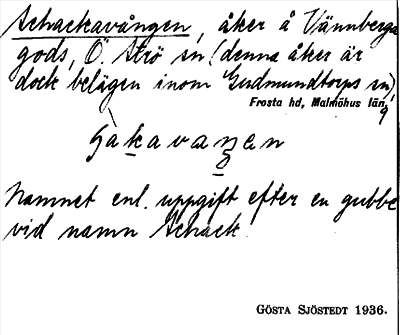 Schackavången, åker å Vännberga
gods, Ö. Strö sn (denna åker är
dock belägen inom Gudmundtorps sn),
Frosta hd, Malmöhus län,
Sàkavaŋen
Namnet enl. uppgift efter en gubbe
vid namn Schack.
GÖSTA SJÖSTEDT 1936.